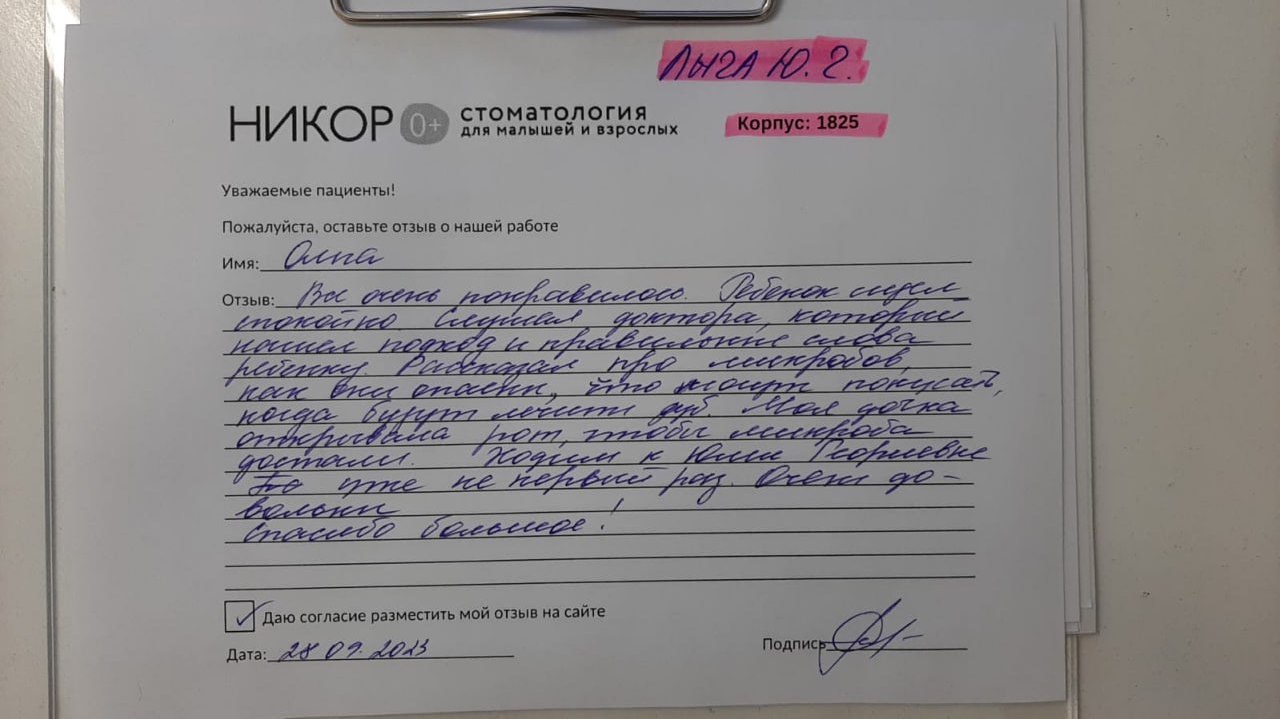 Лыга Ю.Г.
НИКОР 0+ СТОМАТОЛОГИЯ
для малышей и взрослых
Корпус: 1825
Уважаемые пациенты!
Пожалуйста, оставьте отзыв о нашей работе
Имя: Ольга
Отзыв: Все очень понравилось. Ребенок сидел
спокойно. Слушал доктора, который
нашел подход и правильные слова
ребенку. Рассказал про микробов,
как они опасны, что могут покусать,
когда будут лечить зуб. Моя дочка
открывала рот, чтобы микроба
достали. Ходим к Юлии Георгиевне
уже не первый раз. Очень до-
вольны
Спасибо большое!
Даю согласие разместить мой отзыв на сайте
Дата: 28.09.2023
Подпись